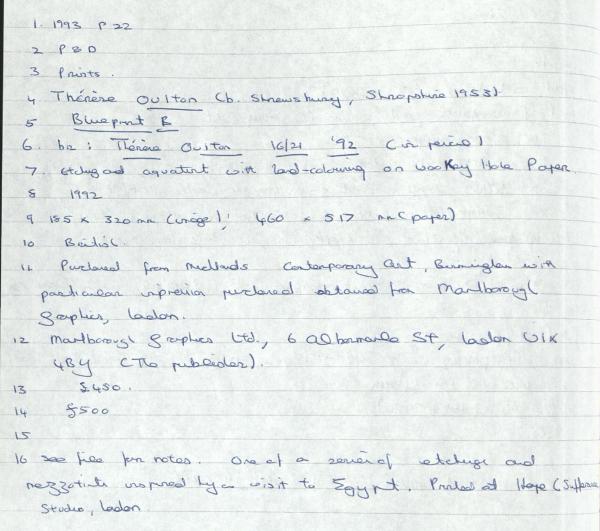 1. 1993 P 22
2 P & D
3 Prints.
4 Thérèse Oulton (b. Shrewsbury, Shropshire 1953)
5 Blueprint B
6. br: Thérèse Oulton 16/21 '92 (in pencil)
7. Etching and aquatint with hand-colouring on Wookey Hole Paper.
8 1992
9 185 x 320 mm (image); 460 x 517 mm (paper)
10 British.
11 Purchased from Midlands Contemporary Art, Birmingham with
particular impression purchased obtained from Marlborough
Graphics, London.
12 Marlborough Graphics Ltd, 6 Albermarle St, London W1X
4BY (The publisher).
13 £450.
14 £500
15
16 see file for notes. One of a series of etchings and
mezzotints inspired by a visit to Egypt. Printed at Hope (Sufferance
Studio, London